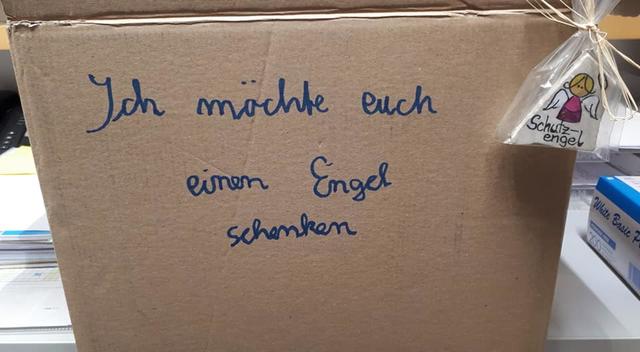 Ich möchte euch
einen Engel
schenken
Schutz-
engel
White Basic